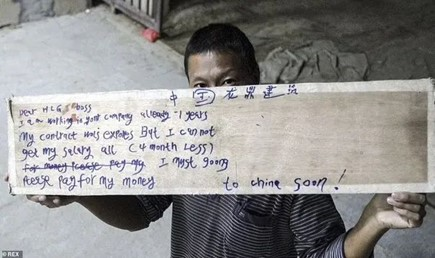 中 工 龙鼎建设
Dear HCG boss
I am working in your company already 1 years
My contract was expires But I can not
get my salary all (4 month less)
for money please pay my I must going
please pay for my money to china soon!
© REX